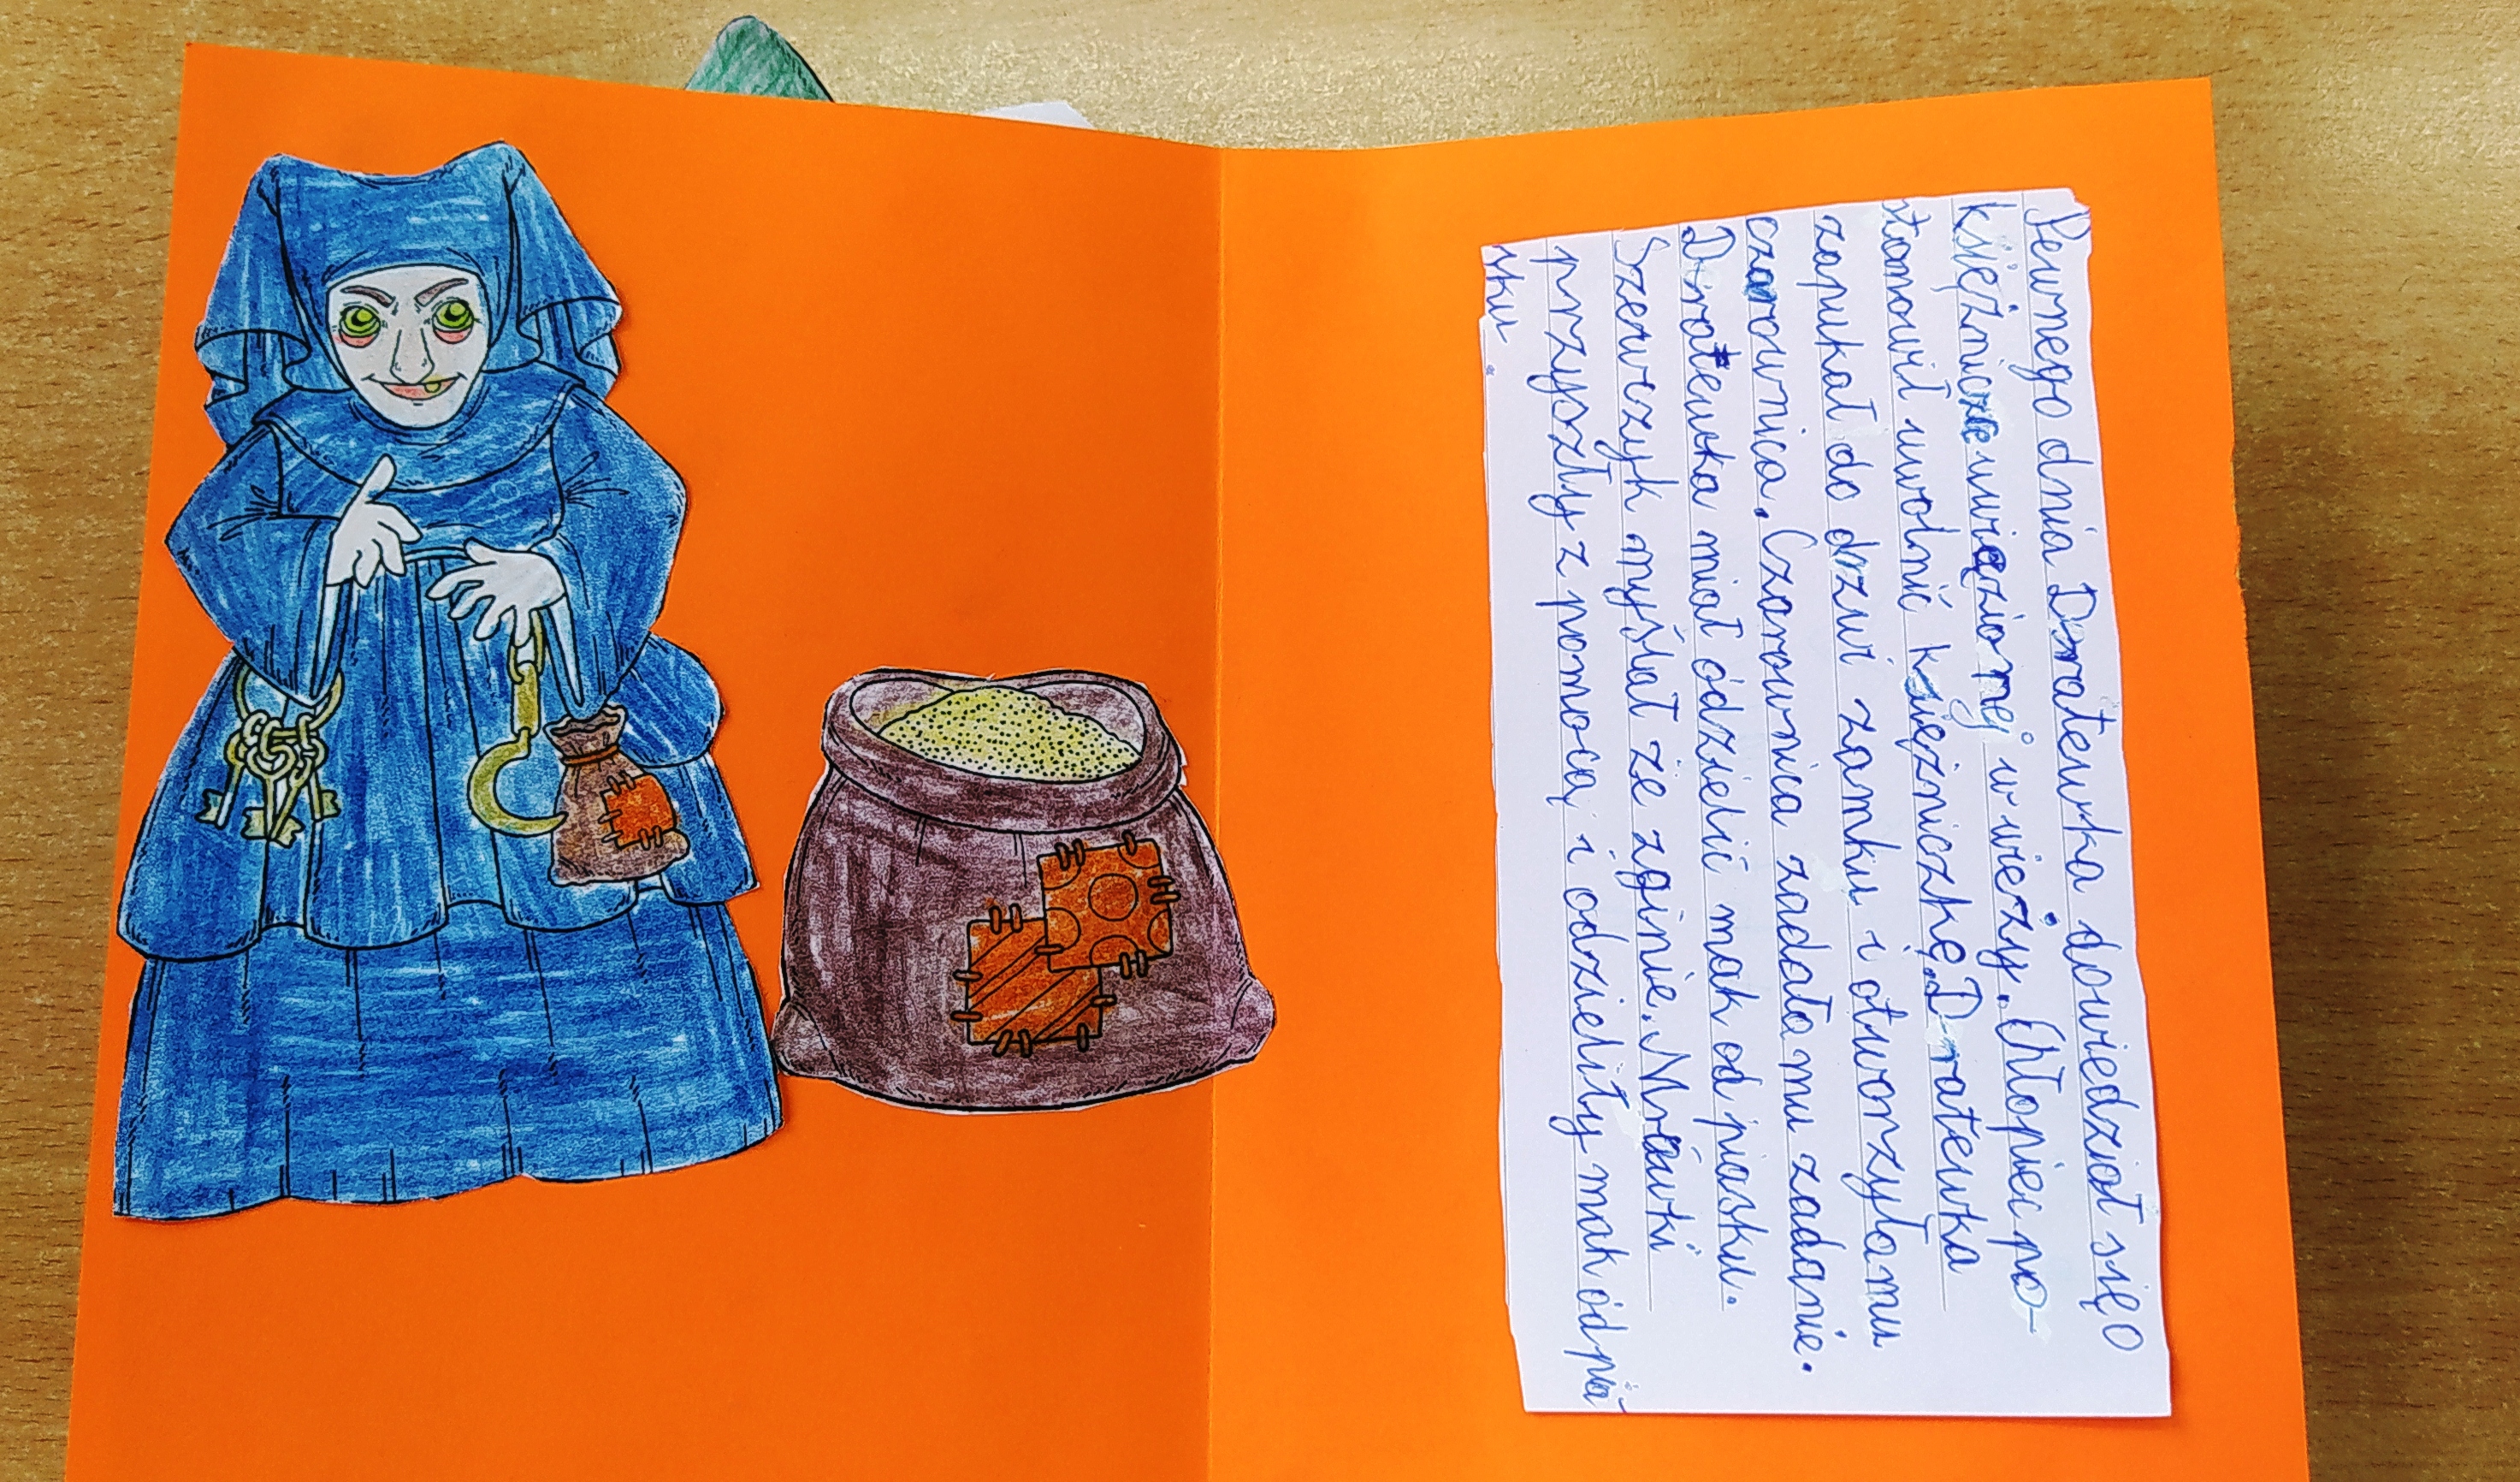 Pewnego dnia Dratewka dowiedział się o
księżniczce uwięzionej w wieży. Chłopiec po-
stanowił uwolnić księżniczkę. Dratewka
zapukał do drzwi zamku i otworzyła mu
czarownica. Czarownica zadała mu zadanie.
Dratewka miał odzielić mak od piasku.
Szewczyk myślał że zginie. Mrówki
przyszły z pomocą i odzieliły mak od pia
sku